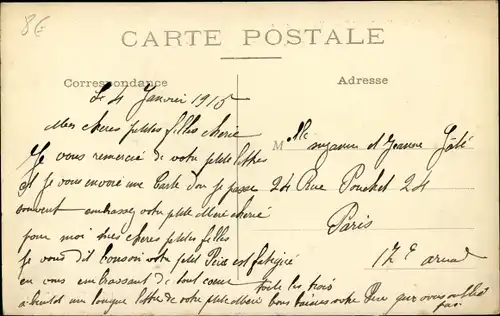 8€
CARTE POSTALE
Correspondance
Adresse
Le 4 Janvier 1915
Mes cheres petites filles cherie
Je vous remercie de votre ptite lettres
et je vous envoie une Carte d'ou je passe
souvent embrassez votre ptite Mere cherie
pour moi mes cheres petites filles
je vous dit bonsoir votre petit Pere est fatigué
en vous embrassant de tout coeur toute les trois
a bientot une longue lettre de votre ptite Mere bons baisers votre Pere qui vous oublie pas
M lle Suzanne et Jeanne
24 Rue Pouchet 24
Paris
17e